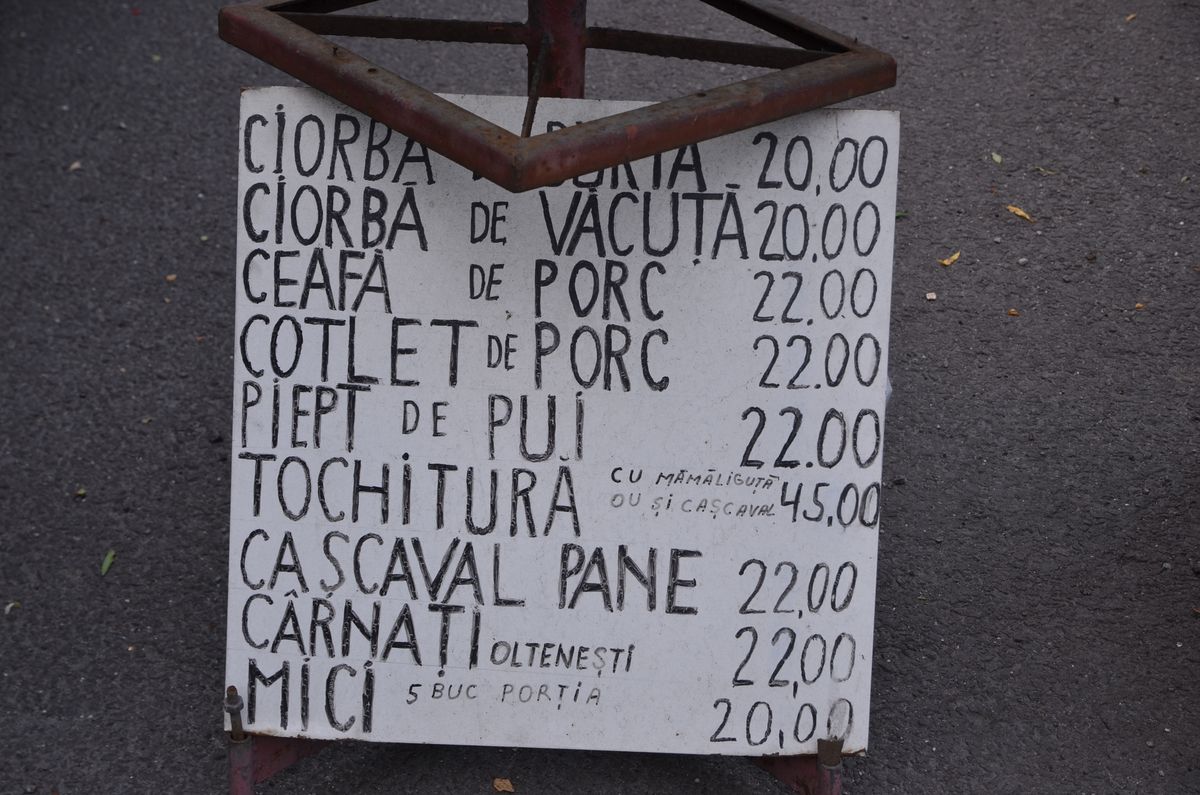 CIORBĂ BURTA 20,00
CIORBĂ DE VĂCUȚĂ 20,00
CEAFĂ DE PORC 22.00
COTLET DE PORC 22.00
PIEPT DE PUI 22.00
TOCHITURĂ CU MĂMĂLIGUȚĂ OU ȘI CAȘCAVAL 45,00
CAȘCAVAL PANE 22,00
CÂRNAȚI OLTENEȘTI 22,00
MICI 5 BUC PORȚIA 20,00